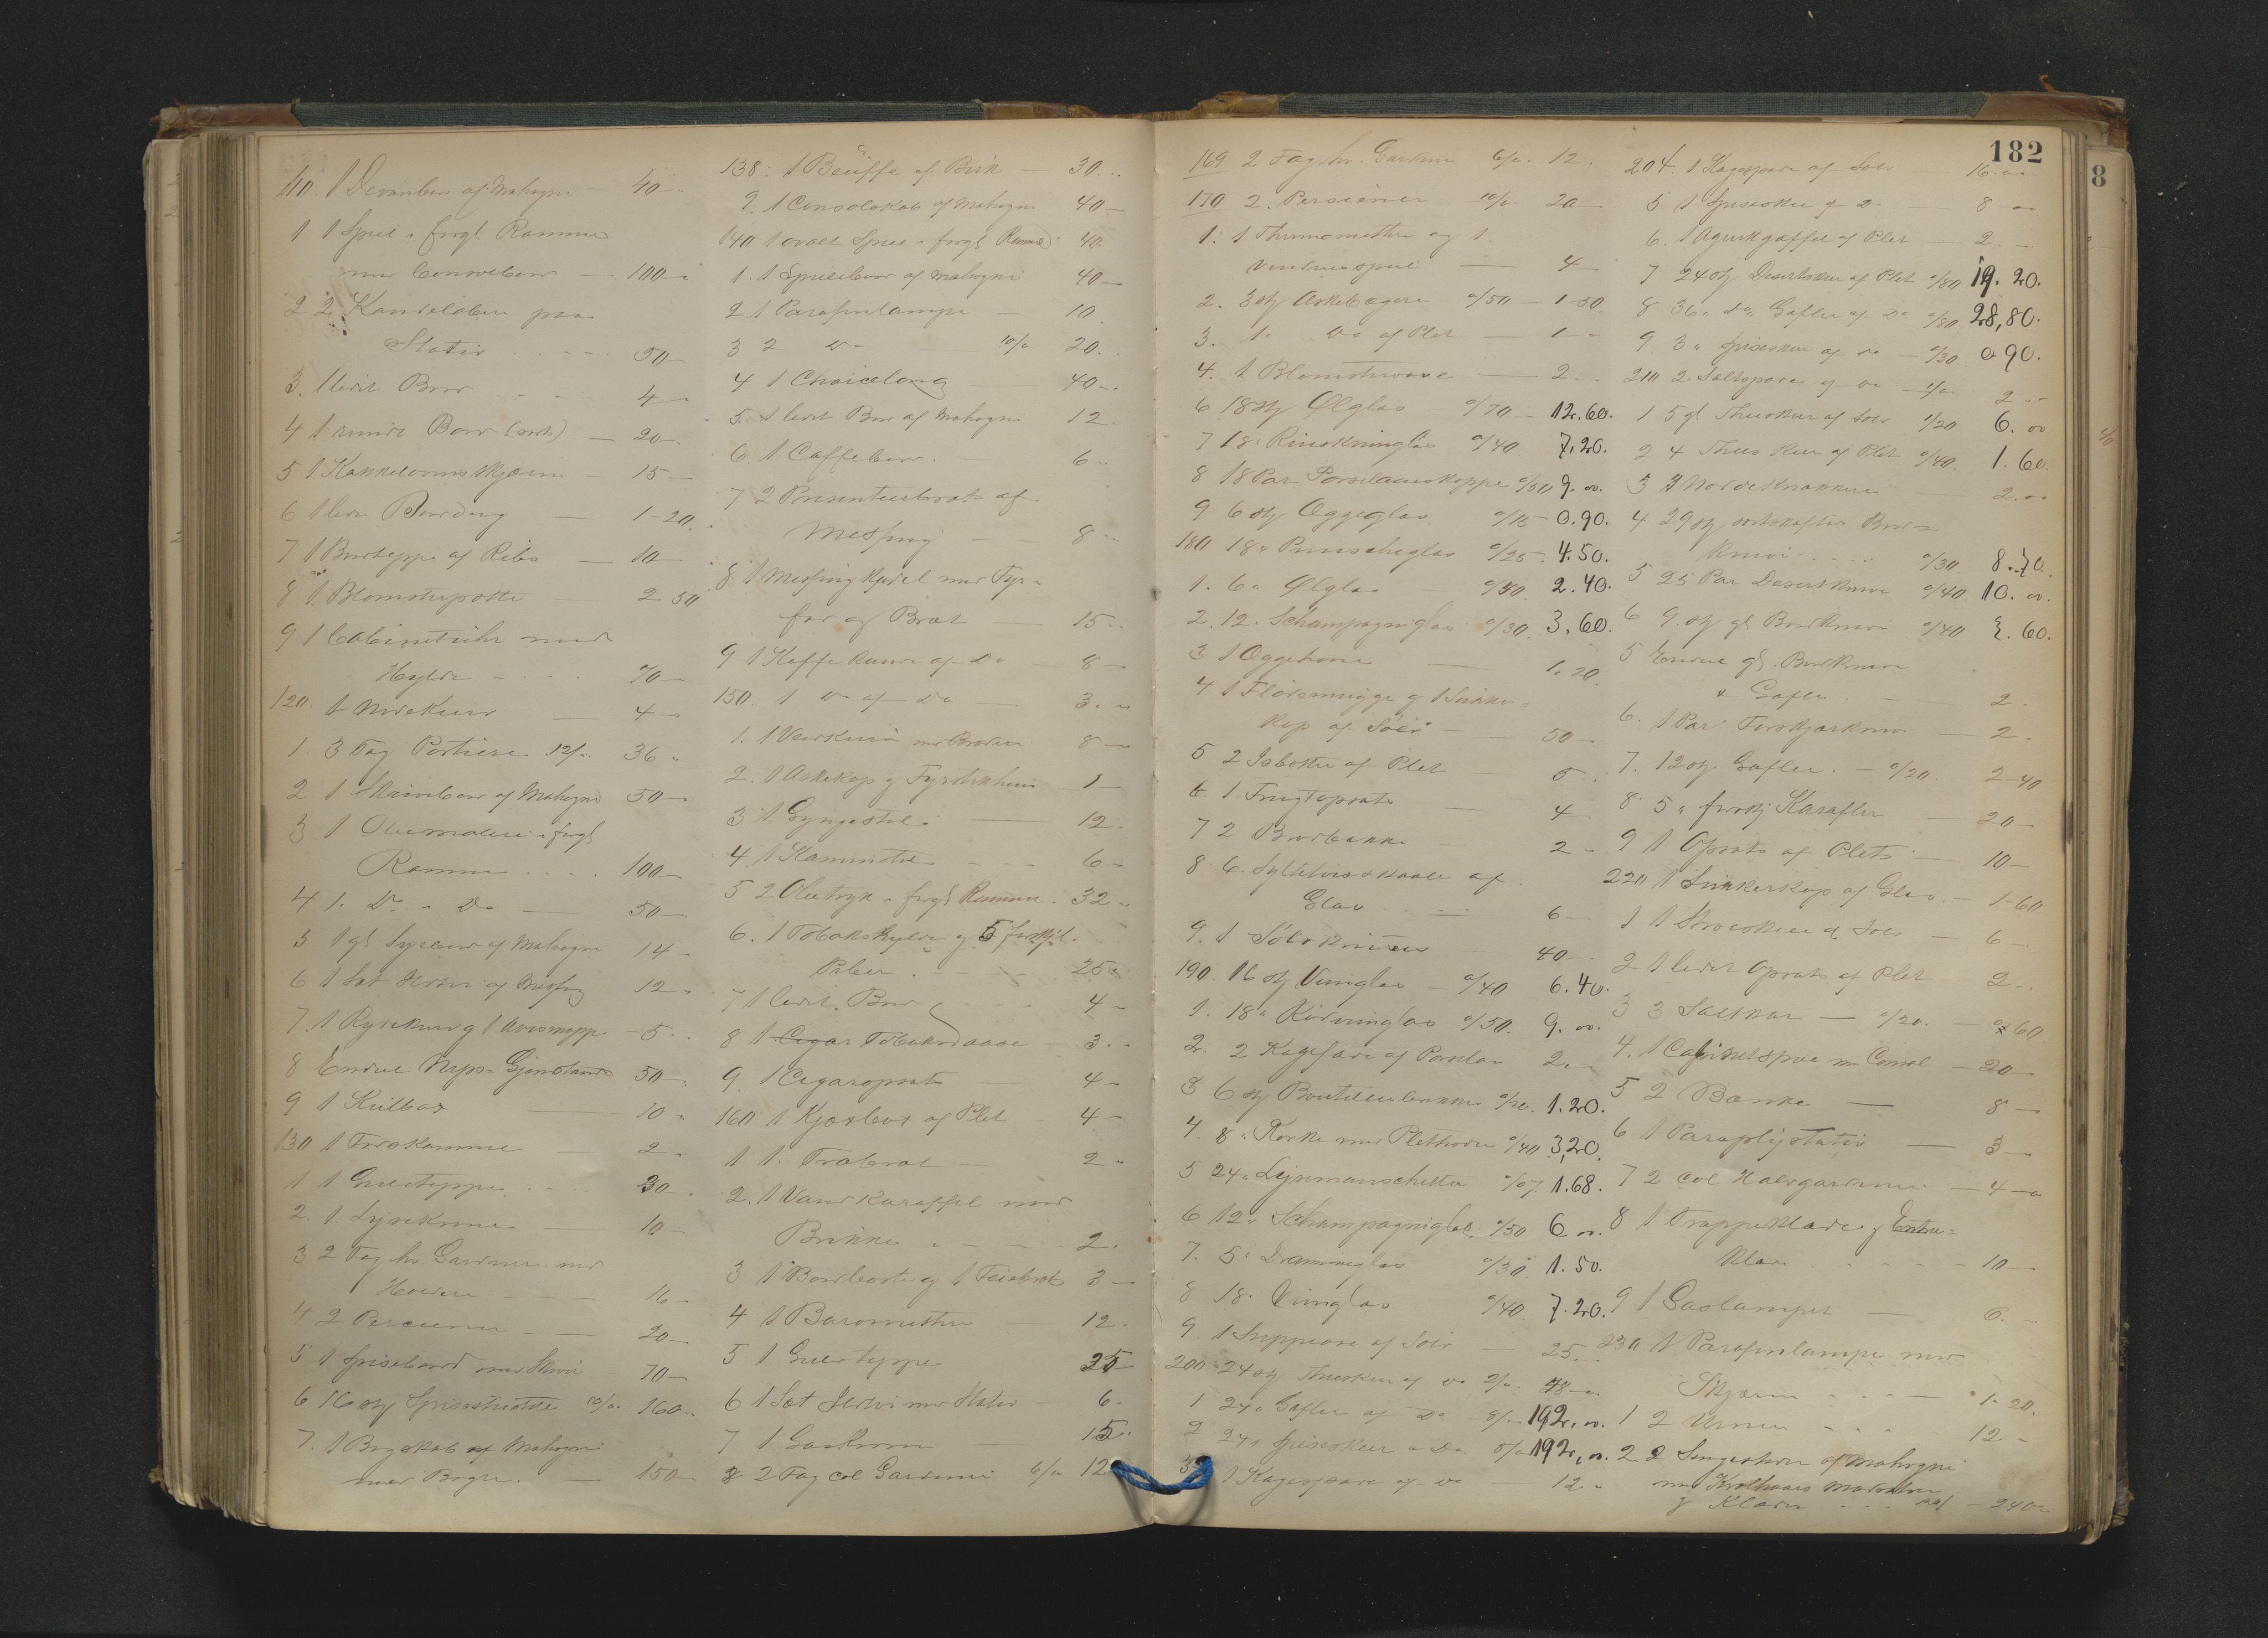 110. 1 Divanbord af Mahogni - 40 -
1 1 Speil i forgl Ramme
med Consolbord - 100 -
2 2 Kandelaber paa
Stativ . . . - 50 -
3. 1 lidet Bord . . . 4 -
4 1 rundt Bord (sort) - 20 -
5 1 Kakkelovns Skjærm - 15 -
6 1 liden Borddug - 1-20
7 1 Bordteppe af Ribs - 10 -
8 1 Blomsterpotte - 2 50
9 1 Cabinetsuhr med
Hylde - - - - 70 -
120. 1 Nodekurv - 4 -
1. 3 Fag Portiere 12/" 36 "
2 1 Skrivebord af Mahogni 50 -
3 1 Oliemaleri i forgl
Ramme . . . . 100 -
4 1. Do " Do - 50 -
5 1 gl Syebord af Mahogni 14 -
6 1 Sæt Ildtøi af Messing 12 "
7. 1 Rydekurv og 1 Avismappe - 5 -
8 Endeel Nips-Gjenstande 50 -
9 1 Kulbox - 10 "
130 1 Torvkumme - 2 "
1 1 Gulvteppe . . . . 30 -
2. 1. Lysekrone - 10 -
3 2 Fag hv. Gardiner med
Holdere - - - - 16 -
4 2 Persienner - - 20 -
5 1 Spisebord med Skuvi - 70 -
6 16 stk Spisestuestole 10/" 160 "
7. 1 Bogskab af Mahogni
med Bøger. - 150 -
138: 1 Beuffe af Birk - 30 ..
9. 1 Consolskab af Mahogni 40 -
140 1 ovalt Speil i forgl Ramme 40
1. 1 Spillebord af Mahogni 40 -
2 1 Parafinlampe - 10
3 2 Do - 10/" 20.
4 1 Chaicelong - 40 -
5. 1 lidet Bord af Mahogni 12
6. 1 Caffebord. - 6 "
7 2 Presenteerbræt af
Messing - - 8 "
8 1 Messing Kjedel med Fyr-
fad og Bræt - 15 "
9 1 Kaffe Kande af Do - 8 -
150. 1 Do af Do - 3. "
1. 1 Vedkurv med Broderi 8 -
2. 1 Askekop og Fyrstikhuus 1 -
3 1 Gyngestol - 12.
4 1 Kaminstol - - - 6 -
5 2 Olietryk i forgl Rammer . 32 "
6. 1 Tobakshylde og 5 forskjl.
Piber . - - - 25 "
7 1 lidet Bord - - - 4 "
8 1 Tobaksdaase - 3. "
9. 1 Cigaropsats - 4 -
160 1 Kjæxbox af Plet 4 -
1 1. Træbræt - 2 "
2. 1 Vand Karaffel med
Brikke " - - - 2.
3 1 Bordkoste og 1 Feiebræt 3 -
4 1 Barometer - 12.
5 1 Gulvteppe 25
6 1 Sæt Ildtøi med Stativ - 6.
7 1 Gaskrone - 15.
8 2 Fag col Gardiner 6/" 12
182
169 2 Fag hv. Gardiner 6/" 12.
170 2. Persienner 10/" 20 -
1: 1 Thermometer og 1.
Vinduesspeil - 4 -
2. 3 stk Askebægere "/50 - 1-50
3. 1 " Do af Plet - 1 "
4. 1 Blomstervase - 2 "
6 18 stk Ølglas "/70 - 12.60.
7 18 " Rinskvinglas "/40. 7.20.
8 18 Par Porselainskopper "/50 9. oo.
9 6 stk Eggeglas "/15 0.90.
180 18 " Punscheglas "/25 - 4.50.
1. 6 " Ølglas "/40. 2.40.
2. 12. Schampagniglas "/30. 3.60.
3 1 Eggehøne - 1.20.
4 1 Flødemugge og 1 Sukker-
kop af Sølv - 50 -
5 2 Isbøtter af Plet 5 -
6. 1 Frugtopsats - 4 -
7 2 Brødbakker - 2 -
8. 6. Syltetøisskaale af
Glas . - 6 -
9. 1 Sølvkruus - 40
190. 16 stk Vinglas - "/40 6.40.
1. 18 " Rødvinglas "/50. 9. oo.
2. 2 Kagefade af Porselen 2. -
3 6 stk Bouteillebakker "/20. 1.20.
4. 8 " Korke med Plethoder "/40 3,20.
5 24 " Lysmanschetter "/07. 1.68.
6 12 " Schampagniglas "/50 6 oo.
7. 5 " Drammeglas "/30. 1.50.
8 18. Vinglas "/40. 7.20.
9. 1 Suppeøse af Sølv - 25. -
200 24 stk Theskeer af Do 2/" 48 -
1 24 " Gafler af Do 8/" 192. oo.
2 24 " Spiseskeer " Do. 8/" 192, oo.
3 1 Kagespade af Do - 12 "
204. 1 Kagespade af Sølv - 16. "
5 1 Spiseskee af Do - 8 - "
6. 1 Agurkgaffel af Plet - 2 -
7 24 stk Desertskeer af Plet "/80 19. 20.
8 36 " Do Gafler af Do "/80 28,80.
9. 3 " Spiseskeer af Do - "/30. 0.90.
210 2 Saltspader af Do - 1/" 2 -
1 5 gl Theskeer af Sølv 1/20 6. oo
2 4 Theskeer af Plet "/40. 1. 60.
3 2 Nøddeknækkere - 2. oo
4 29 stk sortskaftede Bord-
knive . . . . "/30. 8.70.
5 25 Par Desertknive "/40 10. oo.
6 9 stk gl Bordknive "/40 3. 60.
5 Endeel gl. Bordknive
& Gafler. - 2.
6. 1 Par Forskjærkniv - 2 -
7. 12 stk Gafler. - "/20. 2-40
8. 5 " forskj Karafler - 20 -
9 1 Opsats af Plet - 10 -
220 1 Sukkerkop af Glas - 1-60
1 1 Strøeskee af Sølv - 6 -
2 1 lidet Opsats af Plet - 2 -
3 3 Saltkar - "/20. - " 60
4. 1 Cabinetspeil m Consol - 20 -
5 2 Bænke - 8 -
6 1 Paraplystativ - 3 -
7 2 col Halvgardiner - 4 -
8 1 Trappeklæde og Entre-
klæde - - - - - 10 -
9 1 Gaslampet - 6. -
230 1 Parafinlampe med
Skjærm - - - - 1-20.
1 2 Urner - - - 12 -
2 2 Sengesteder af Mahogni
med Krølhaars Madrasser
og Klæder . . . - 240 -
8